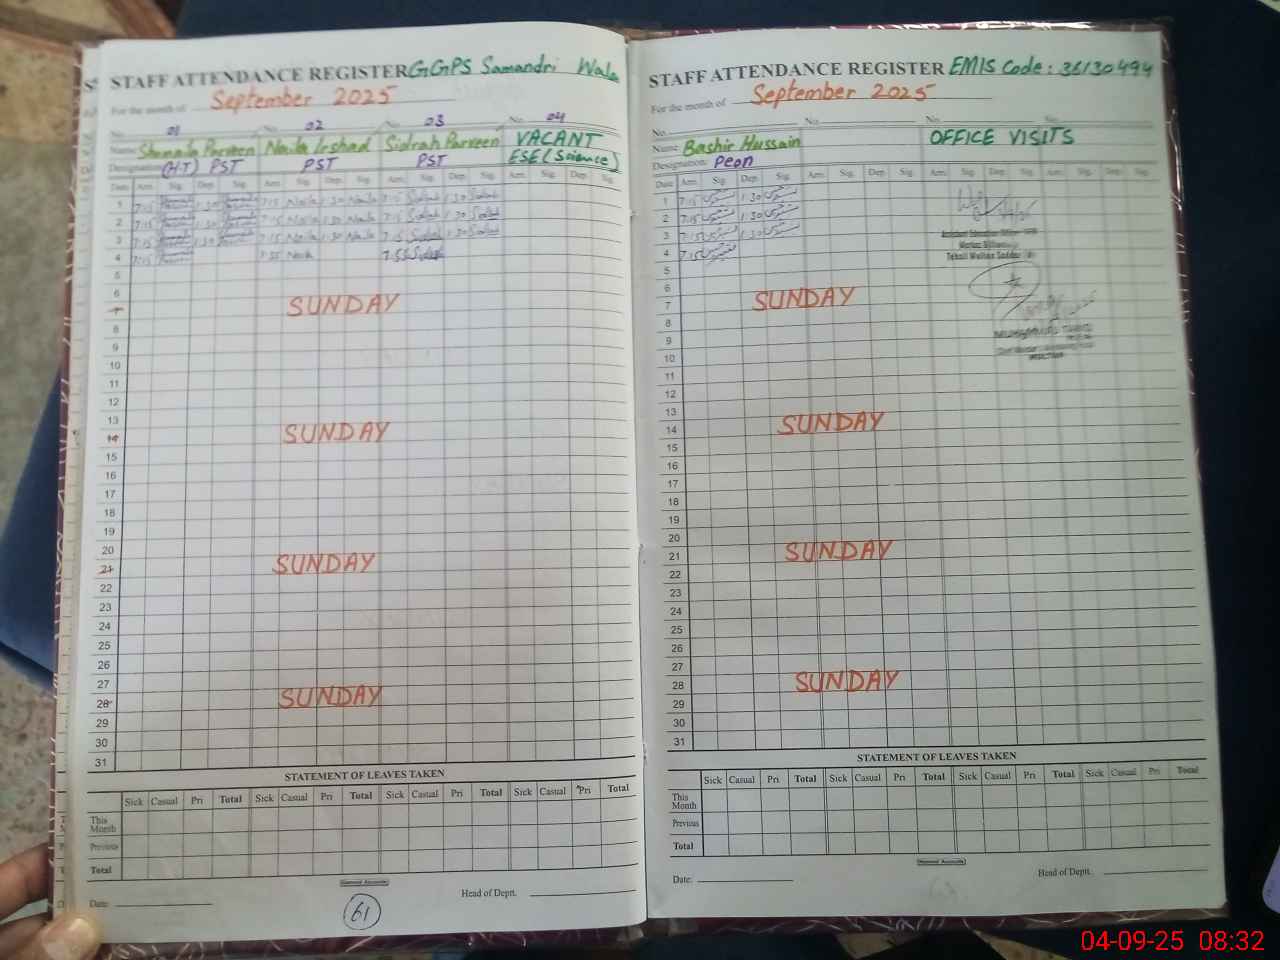 STAFF ATTENDANCE REGISTER GGPS Samandri Wala
For the month of September 2025
No. 01 No. 02 No. 03 No. 04
Name Shamala Parveen Naila Irshad Sidrah Parveen VACANT
Designation (H.T) PST PST PST ESE (Science)
Date Arr. Sig. Dep. Sig. Arr. Sig. Dep. Sig. Arr. Sig. Dep. Sig. Arr. Sig. Dep. Sig.
1 7:15 1:30 7:15 Naila 1:30 Naila 7:15 Sidrah 1:30 Sidrah
2 7:15 1:30 7:15 Naila 1:30 Naila 7:15 Sidrah 1:30 Sidrah
3 7:15 1:30 7:15 Naila 1:30 Naila 7:15 Sidrah 1:30 Sidrah
4 7:15 7:55 Naila 7:55 Sidrah
5
6
7 SUNDAY
8
9
10
11
12
13
14 SUNDAY
15
16
17
18
19
20
21 SUNDAY
22
23
24
25
26
27
28 SUNDAY
29
30
31
STATEMENT OF LEAVES TAKEN
Sick Casual Pri Total Sick Casual Pri Total Sick Casual Pri Total Sick Casual Pri Total
This Month
Previous
Total
Date:
Head of Deptt.
61
STAFF ATTENDANCE REGISTER EMIS Code: 36130494
For the month of September 2025
No. No. No. No.
Name Bashir Hussain OFFICE VISITS
Designation: Peon
Date Arr. Sig. Dep. Sig. Arr. Sig. Dep. Sig. Arr. Sig. Dep. Sig. Arr. Sig. Dep. Sig.
1 7:15 1:30
2 7:15 1:30
3 7:15 1:30
4 7:15
Assistant Education Officer
Markaz
Tehsil Multan Saddar
5
6
7 SUNDAY
8
9
10
11
12
13
14 SUNDAY
15
16
17
18
19
20
21 SUNDAY
22
23
24
25
26
27
28 SUNDAY
29
30
31
STATEMENT OF LEAVES TAKEN
Sick Casual Pri Total Sick Casual Pri Total Sick Casual Pri Total Sick Casual Pri Total
This Month
Previous
Total
Date:
Head of Deptt.
04-09-25 08:32